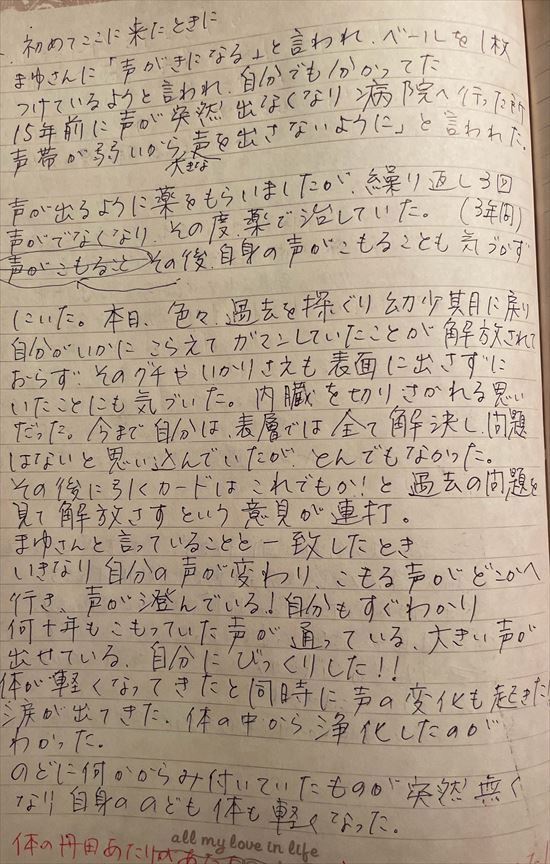 初めてここに来たときに
まゆさんに「声がきになる」と言われ、ベールを1枚
つけているようと言われ、自分でも分かってた
15年前に声が突然出なくなり病院へ行った所
声帯が弱いから大きな声を出さないように」と言われた。
声が出るように薬をもらいましたが、繰り返し3回
声がでなくなり、その度、薬で治していた。(3年間)
声がこもること その後、自身の声がこもることも気づかず
にいた。本日、色々、過去を探ぐり幼少期月に戻り
自分がいかにこらえてガマンしていたことが解放されて
おらず、そのグチやいかりさえも表面に出さずに
いたことにも気づいた。内臓を切りさかれる思い
だった。今まで自分は、表層では全て解決し問題
はないと思い込んでいたが、とんでもなかった。
その後に引くカードはこれでもか!と過去の問題を
見て解放さすという意見が連打。
まゆさんと言っていることと一致したとき
いきなり自分の声が変わり、こもる声がどこかへ
行き、声が澄んでいる!自分もすぐわかり
何十年もこもっていた声が通っている、大きい声が
出せている、自分にびっくりした!!
体が軽くなってきたと同時に、声の変化も起きた!
涙が出てきた、体の中から浄化したのが
わかった。
のどに何かからみ付いていたものが突然無く
なり自身ののども体も軽くなった。
all my love in life
体の丹田あたりが